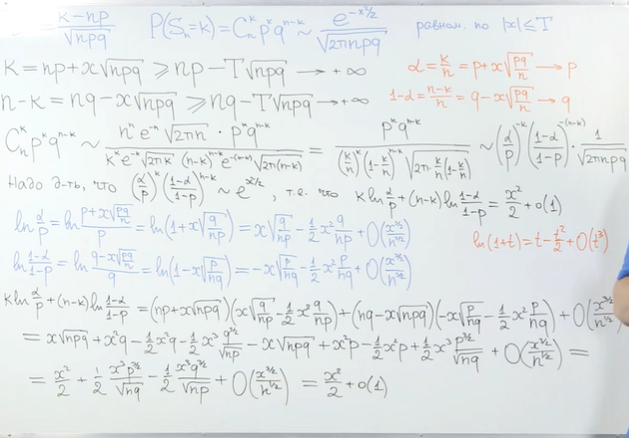 (k-np)/√(npq) P(Sₙ=k) = Cₙᵏ pᵏ qⁿ⁻ᵏ ~ e^(-x²/2)/√(2πnpq) равном. по |x|≤T
k = np + x√(npq) ≥ np - T√(npq) → +∞ α = k/n = p + x√(pq/n) → p
n-k = nq - x√(npq) ≥ nq - T√(npq) → +∞ 1-α = (n-k)/n = q - x√(pq/n) → q
Cₙᵏ pᵏ qⁿ⁻ᵏ ~ (nⁿ e⁻ⁿ √(2πn) · pᵏ qⁿ⁻ᵏ)/(kᵏ e⁻ᵏ √(2πk) (n-k)ⁿ⁻ᵏ e^(-(n-k)) √(2π(n-k))) = (pᵏ qⁿ⁻ᵏ)/((k/n)ᵏ (1-k/n)ⁿ⁻ᵏ √(2πn·k/n(1-k/n))) ~ (α/p)⁻ᵏ ((1-α)/(1-p))^(-(n-k)) · 1/√(2πnpq)
Надо д-ть, что (α/p)ᵏ ((1-α)/(1-p))ⁿ⁻ᵏ ~ e^(x²/2), т.е. что k ln α/p + (n-k) ln (1-α)/(1-p) = x²/2 + o(1)
ln α/p = ln (p + x√(pq/n))/p = ln(1 + x√(q/np)) = x√(q/np) - 1/2 x² q/np + O(x^(3/2)/n^(3/2)) ln(1+t) = t - t²/2 + O(t³)
ln (1-α)/(1-p) = ln (q - x√(pq/n))/q = ln(1 - x√(p/nq)) = -x√(p/nq) - 1/2 x² p/nq + O(x^(3/2)/n^(3/2))
k ln α/p + (n-k) ln (1-α)/(1-p) = (np + x√(npq))(x√(q/np) - 1/2 x² q/np) + (nq - x√(npq))(-x√(p/nq) - 1/2 x² p/nq) + O(x^(3/2)/n^(1/2))
= x√(npq) + x²q - 1/2 x²q - 1/2 x³ q^(3/2)/√(np) - x√(npq) + x²p - 1/2 x²p + 1/2 x³ p^(3/2)/√(nq) + O(x^(3/2)/n^(1/2)) =
= x²/2 + 1/2 x³p^(3/2)/√(nq) - 1/2 x³q^(3/2)/√(np) + O(x^(3/2)/n^(1/2)) = x²/2 + o(1)